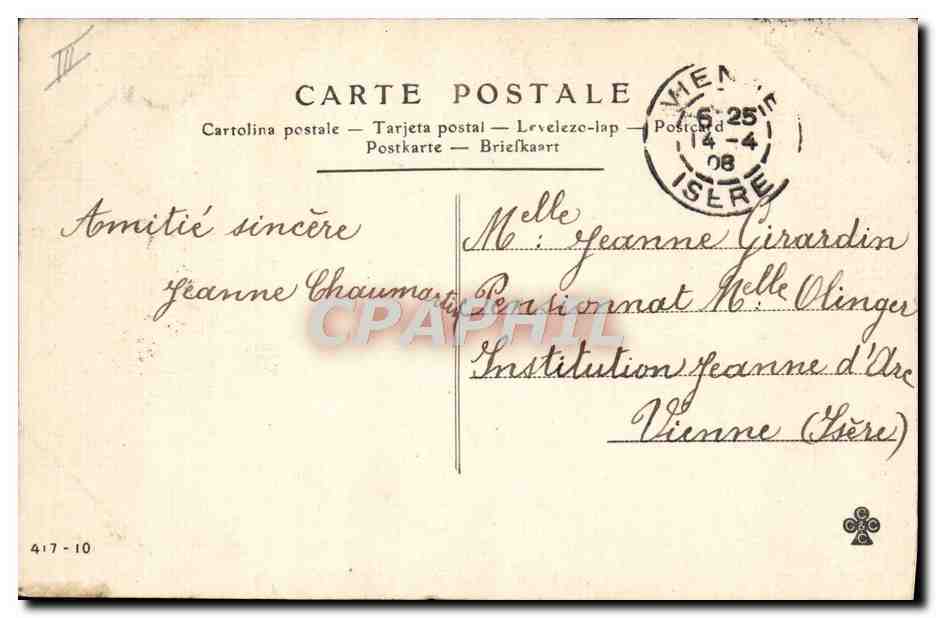 III
CARTE POSTALE
Cartolina postale — Tarjeta postal — Levelezo-lap — Postcard
Postkarte — Briefkaart
VIENNE
6 25
14 - 4
08
ISÈRE
Amitié sincère
Jeanne Chaumartin
Melle : Jeanne Girardin
Pensionnat Melle Olinger
Institution Jeanne d'Arc
Vienne (Isère)
CPAPHIL
417 - 10
C
C & C
C